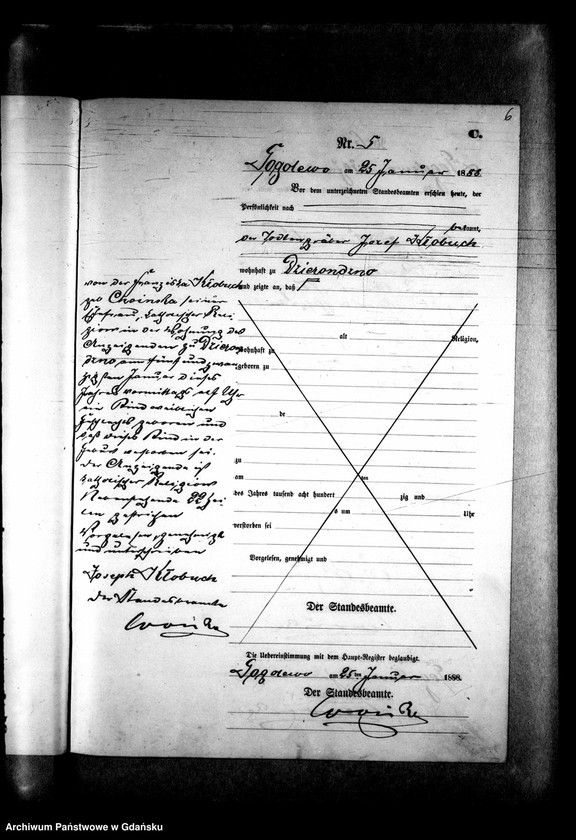 6
C.
Nr. 5
am 25 Januar 1888
Vor dem unterzeichneten Standesbeamten erschien heute, der
Persönlichkeit nach
bekannt,
der Josef Kłobuch
wohnhaft zu Dzierondzno
und zeigte an, daß
von der Franziska Kłobuch
geb seiner
Ehefrau, katholischer Reli
gion in der Wohnung des
Anzeigenden zu Dzieron
dzno am fünf und zwan
zigsten Januar dieses
Jahres vormittags Uhr
ein Kind weiblichen
Geschlechts geboren und
daß dieses Kind in der
Geburt verstorben sei.
Der Anzeigende ist
katholischer Religion
Vorstehende 22 Zei
len gestrichen
Vorgelesen, genehmigt
und unterschrieben
Joseph Kłobuch
Der Standesbeamte
alt
Religion,
wohnhaft zu
geboren zu
de
zu
am
ten
des Jahres tausend acht hundert
zig und
s um
Uhr
verstorben sei
Vorgelesen, genehmigt und
Der Standesbeamte.
Die Uebereinstimmung mit dem Haupt-Register beglaubigt.
am 25 ten Januar 1888.
Der Standesbeamte.
Archiwum Państwowe w Gdańsku